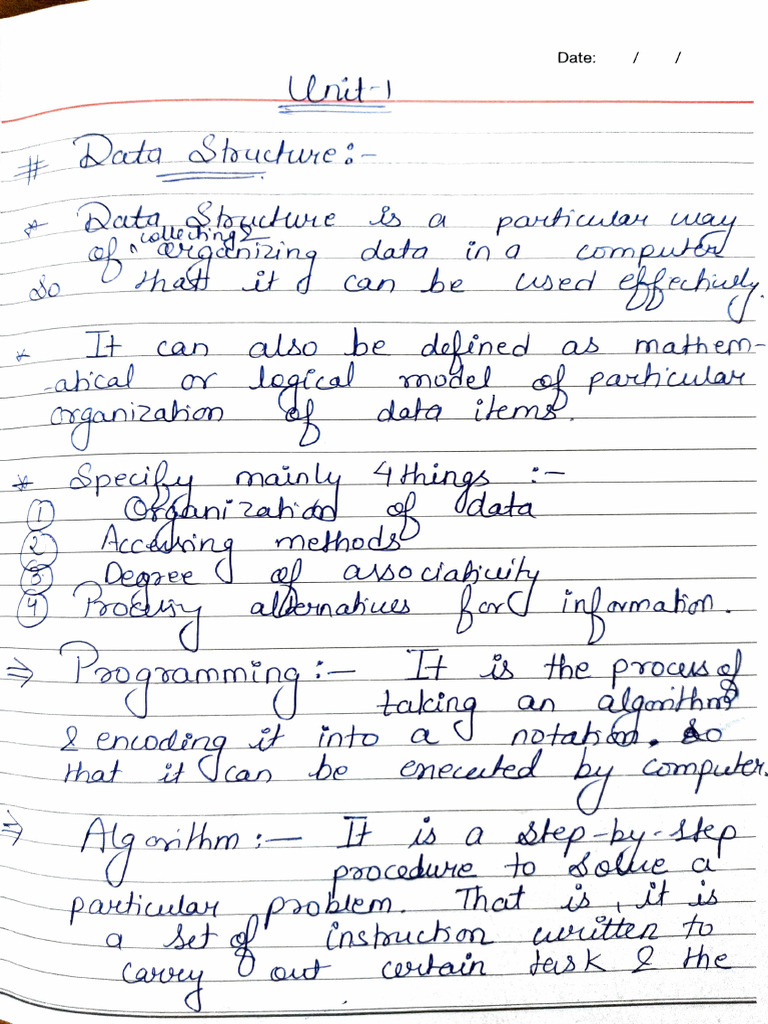 Date: / /
Unit-1
# Data Structure:-
* Data Structure is a particular way
collecting &
of organizing data in a computer
so that it can be used effectively.
* It can also be defined as mathem-
-atical or logical model of particular
organization of data items.
* Specify mainly 4 things :-
① Organization of data
② Accessing methods
③ Degree of associativity
④ Procesing alternatives for information.
⇒ Programming :- It is the process of
taking an algorithm
& encoding it into a notation. so
that it can be executed by computer.
⇒ Algorithm :- It is a step-by-step
procedure to solve a
particular problem. That is, it is
a set of instruction written to
carry out certain task & the